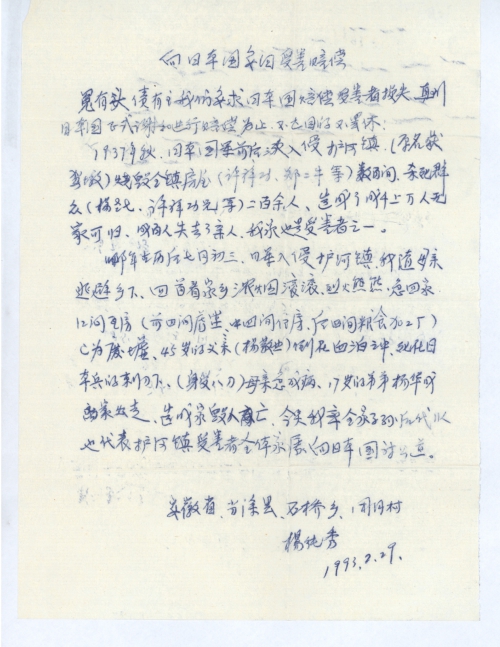 向日本国要洎受害赔偿
冤有头债有主我们要求日本国赔偿受害者损失,直到
日本国正式谢罪进行赔偿为止,不达目的不罢休:
1937年秋,日本国军前后二次入侵护河镇,(原名
)烧毁全镇房屋(许祥、郑二牛等)数百间,杀死群
众(杨、许祥功兄等)二百余人,造成了成千上万人无
家可归,成百人失去了亲人,我家也是受害者之一。
那年古历七月初三,日军入侵护河镇,我随母亲
逃避乡下,回首看家乡浓烟滚滚,烈火熊熊,急回家
12间瓦房(前四间店堂,中四间住房,后四间粮食加工厂)
已为废墟,45岁的父亲(杨)倒在血泊之中,死在日
本兵的刺刀下,(身受八刀)母亲急成病,17岁的弟弟杨华成
出走,造成家毁人亡,今天我率全家子孙后代
也代表护河镇受害者全体家属向日本国讨公道。
安徽省、当涂县、石桥乡、村
杨秀
1993.7.29.